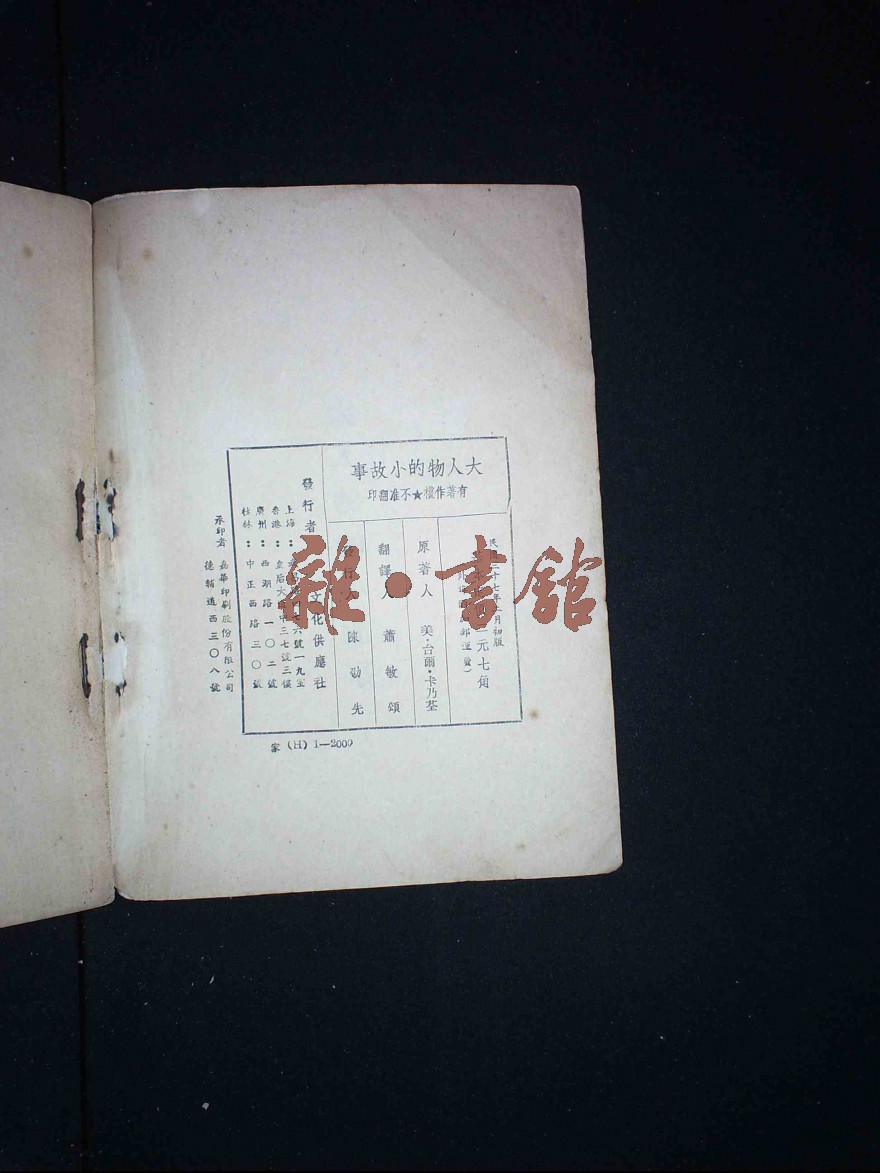 大人物的小故事
有著作權★不准翻印
民國三十七年 月初版
元七角
郵運費）
原著人 美·台爾·卡乃基
翻譯人 蕭敏頌
發行人 陳劭先
發行者 文化供應社
上海： 六號一九室
香港：皇后大道中三七號三樓
廣州：西湖路一〇二號
桂林：中正西路三〇號
承印者 嘉華印刷股份有限公司
德輔道西三〇八號
家 (H) 1—2000
雜·書館